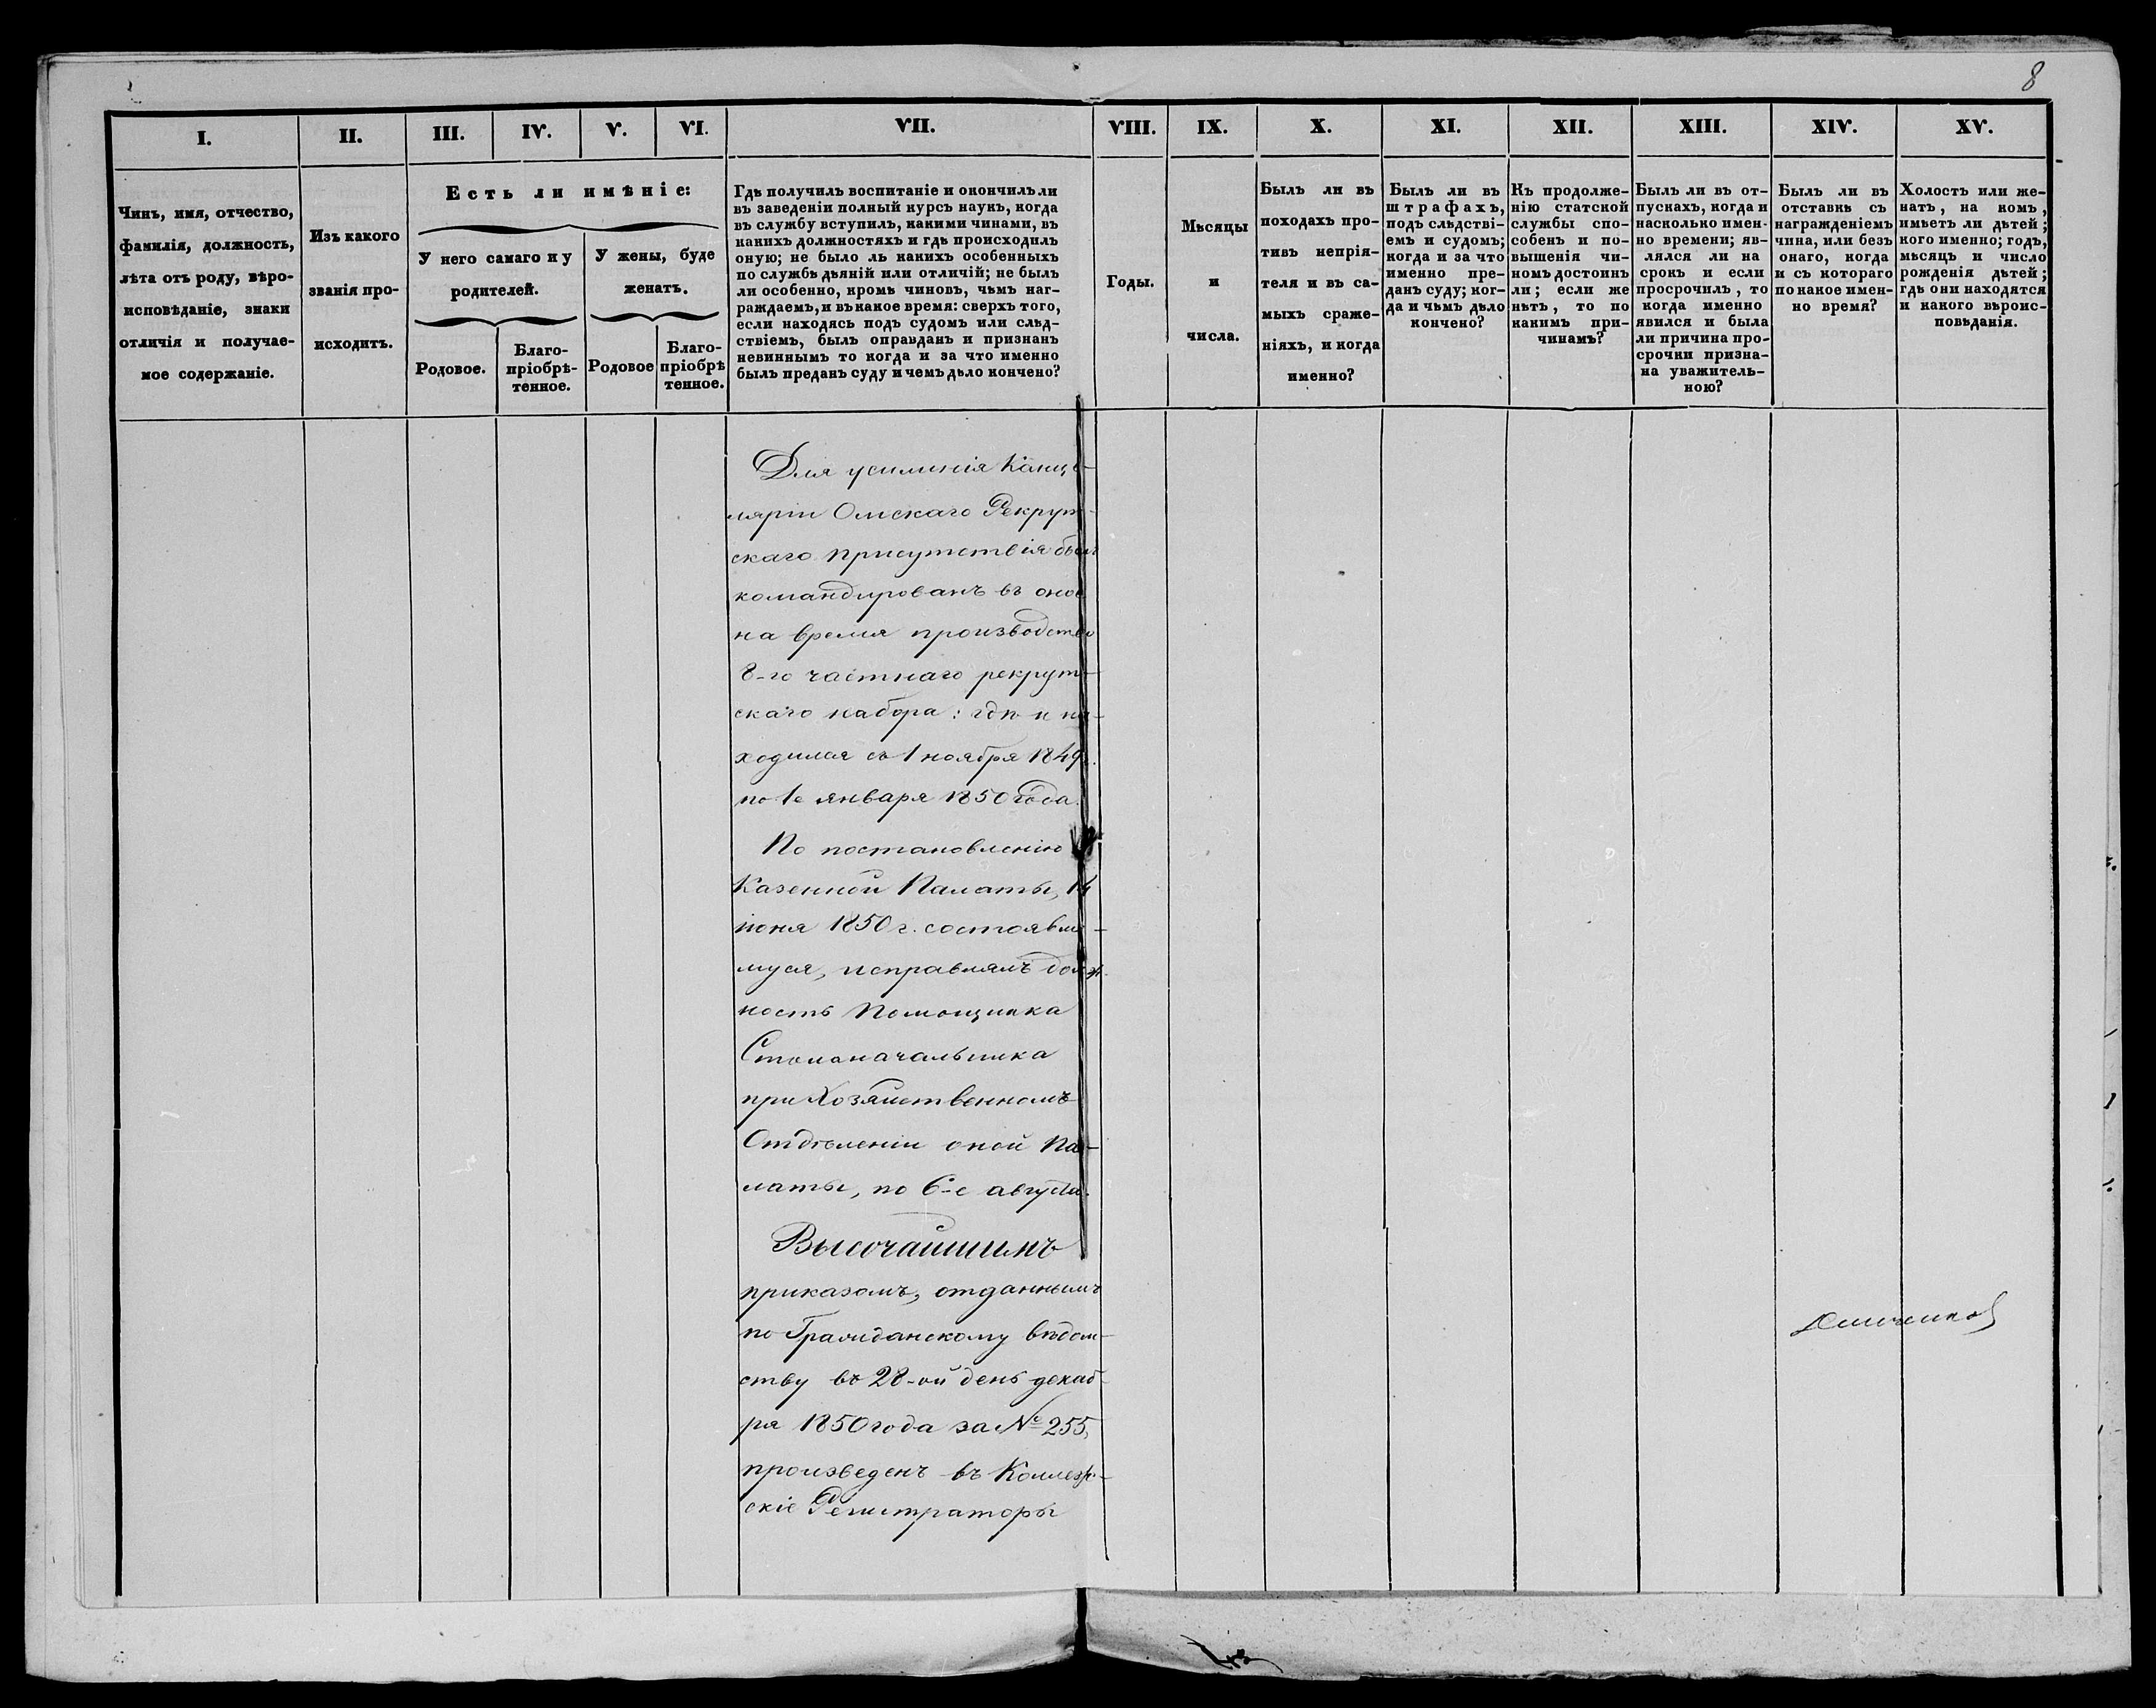 8
I. II. III. IV. V. VI. VII. VIII. IX. X. XI. XII. XIII. XIV. XV.
Чинъ, имя, отчество,
фамилія, должность,
лѣта отъ роду, вѣро-
исповѣданіе, знаки
отличія и получае-
мое содержаніе.
Изъ какого
званія про-
исходитъ.
Есть ли имѣніе:
У него самаго и у
родителей.
У жены, буде
женатъ.
Родовое.
Благо-
пріобрѣ-
тенное.
Родовое
Благо-
пріобрѣ
тенное.
Гдѣ получилъ воспитаніе и окончилъ ли
въ заведеніи полный курсъ наукъ, когда
въ службу вступилъ, какими чинами, въ
какихъ должностяхъ и гдѣ происходилъ
оную; не было ль какихъ особенныхъ
по службѣ дѣяній или отличій; не былъ
ли особенно, кромѣ чиновъ, чѣмъ наг-
раждаемъ, и въ какое время: сверхъ того,
если находясь подъ судомъ или слѣд-
ствіемъ, былъ оправданъ и признанъ
невиннымъ то когда и за что именно
былъ преданъ суду и чемъ дѣло кончено?
Годы.
Мѣсяцы
и
числа.
Былъ ли въ
походахъ про-
тивъ непрія-
теля и въ са-
мыхъ сраже-
ніяхъ, и когда
именно?
Былъ ли въ
штрафахъ,
подъ слѣдстві-
емъ и судомъ;
когда и за что
именно пре-
данъ суду; ког-
да и чѣмъ дѣло
кончено?
Къ продолже-
нію статской
службы спо-
собенъ и по-
вышенія чи-
номъ достоинъ
ли; если же
нѣтъ, то по
какимъ при-
чинамъ?
Былъ ли въ от-
пускахъ, когда и
насколько имен-
но времени; яв-
лялся ли на
срокъ и если
просрочилъ, то
когда именно
явился и была
ли причина про-
срочки призна-
на уважитель-
ною?
Былъ ли въ
отставкѣ съ
награжденіемъ
чина, или безъ
онаго, когда
и съ котораго
по какое имен-
но время?
Холостъ или же-
натъ, на комъ,
имѣетъ ли дѣтей;
кого именно; годъ,
мѣсяцъ и число
рожденія дѣтей;
гдѣ они находятся
и какого вѣроис-
повѣданія.
Для усиленія Канце-
ляріи Омскаго Рекрут-
скаго присутствія былъ
командированъ въ оное
на время производства
8-го частнаго рекрут-
скаго набора: гдѣ и на-
ходился съ 1 ноября 1849 г.
по 1е января 1850 года.
По постановленію
Казенной Палаты, 14
іюня 1850 г. состоявше-
муся, исправлялъ долж-
ность Помощника
Столоначальника
при Хозяйственномъ
Отдѣленіи оной Па-
латы, по 6-е августа.
Высочайшимъ
приказомъ, отданнымъ
по Гражданскому вѣдом-
ству въ 28-ой день декаб-
ря 1850 года за № 255,
произведенъ въ Коллеж-
скіе Регистраторы